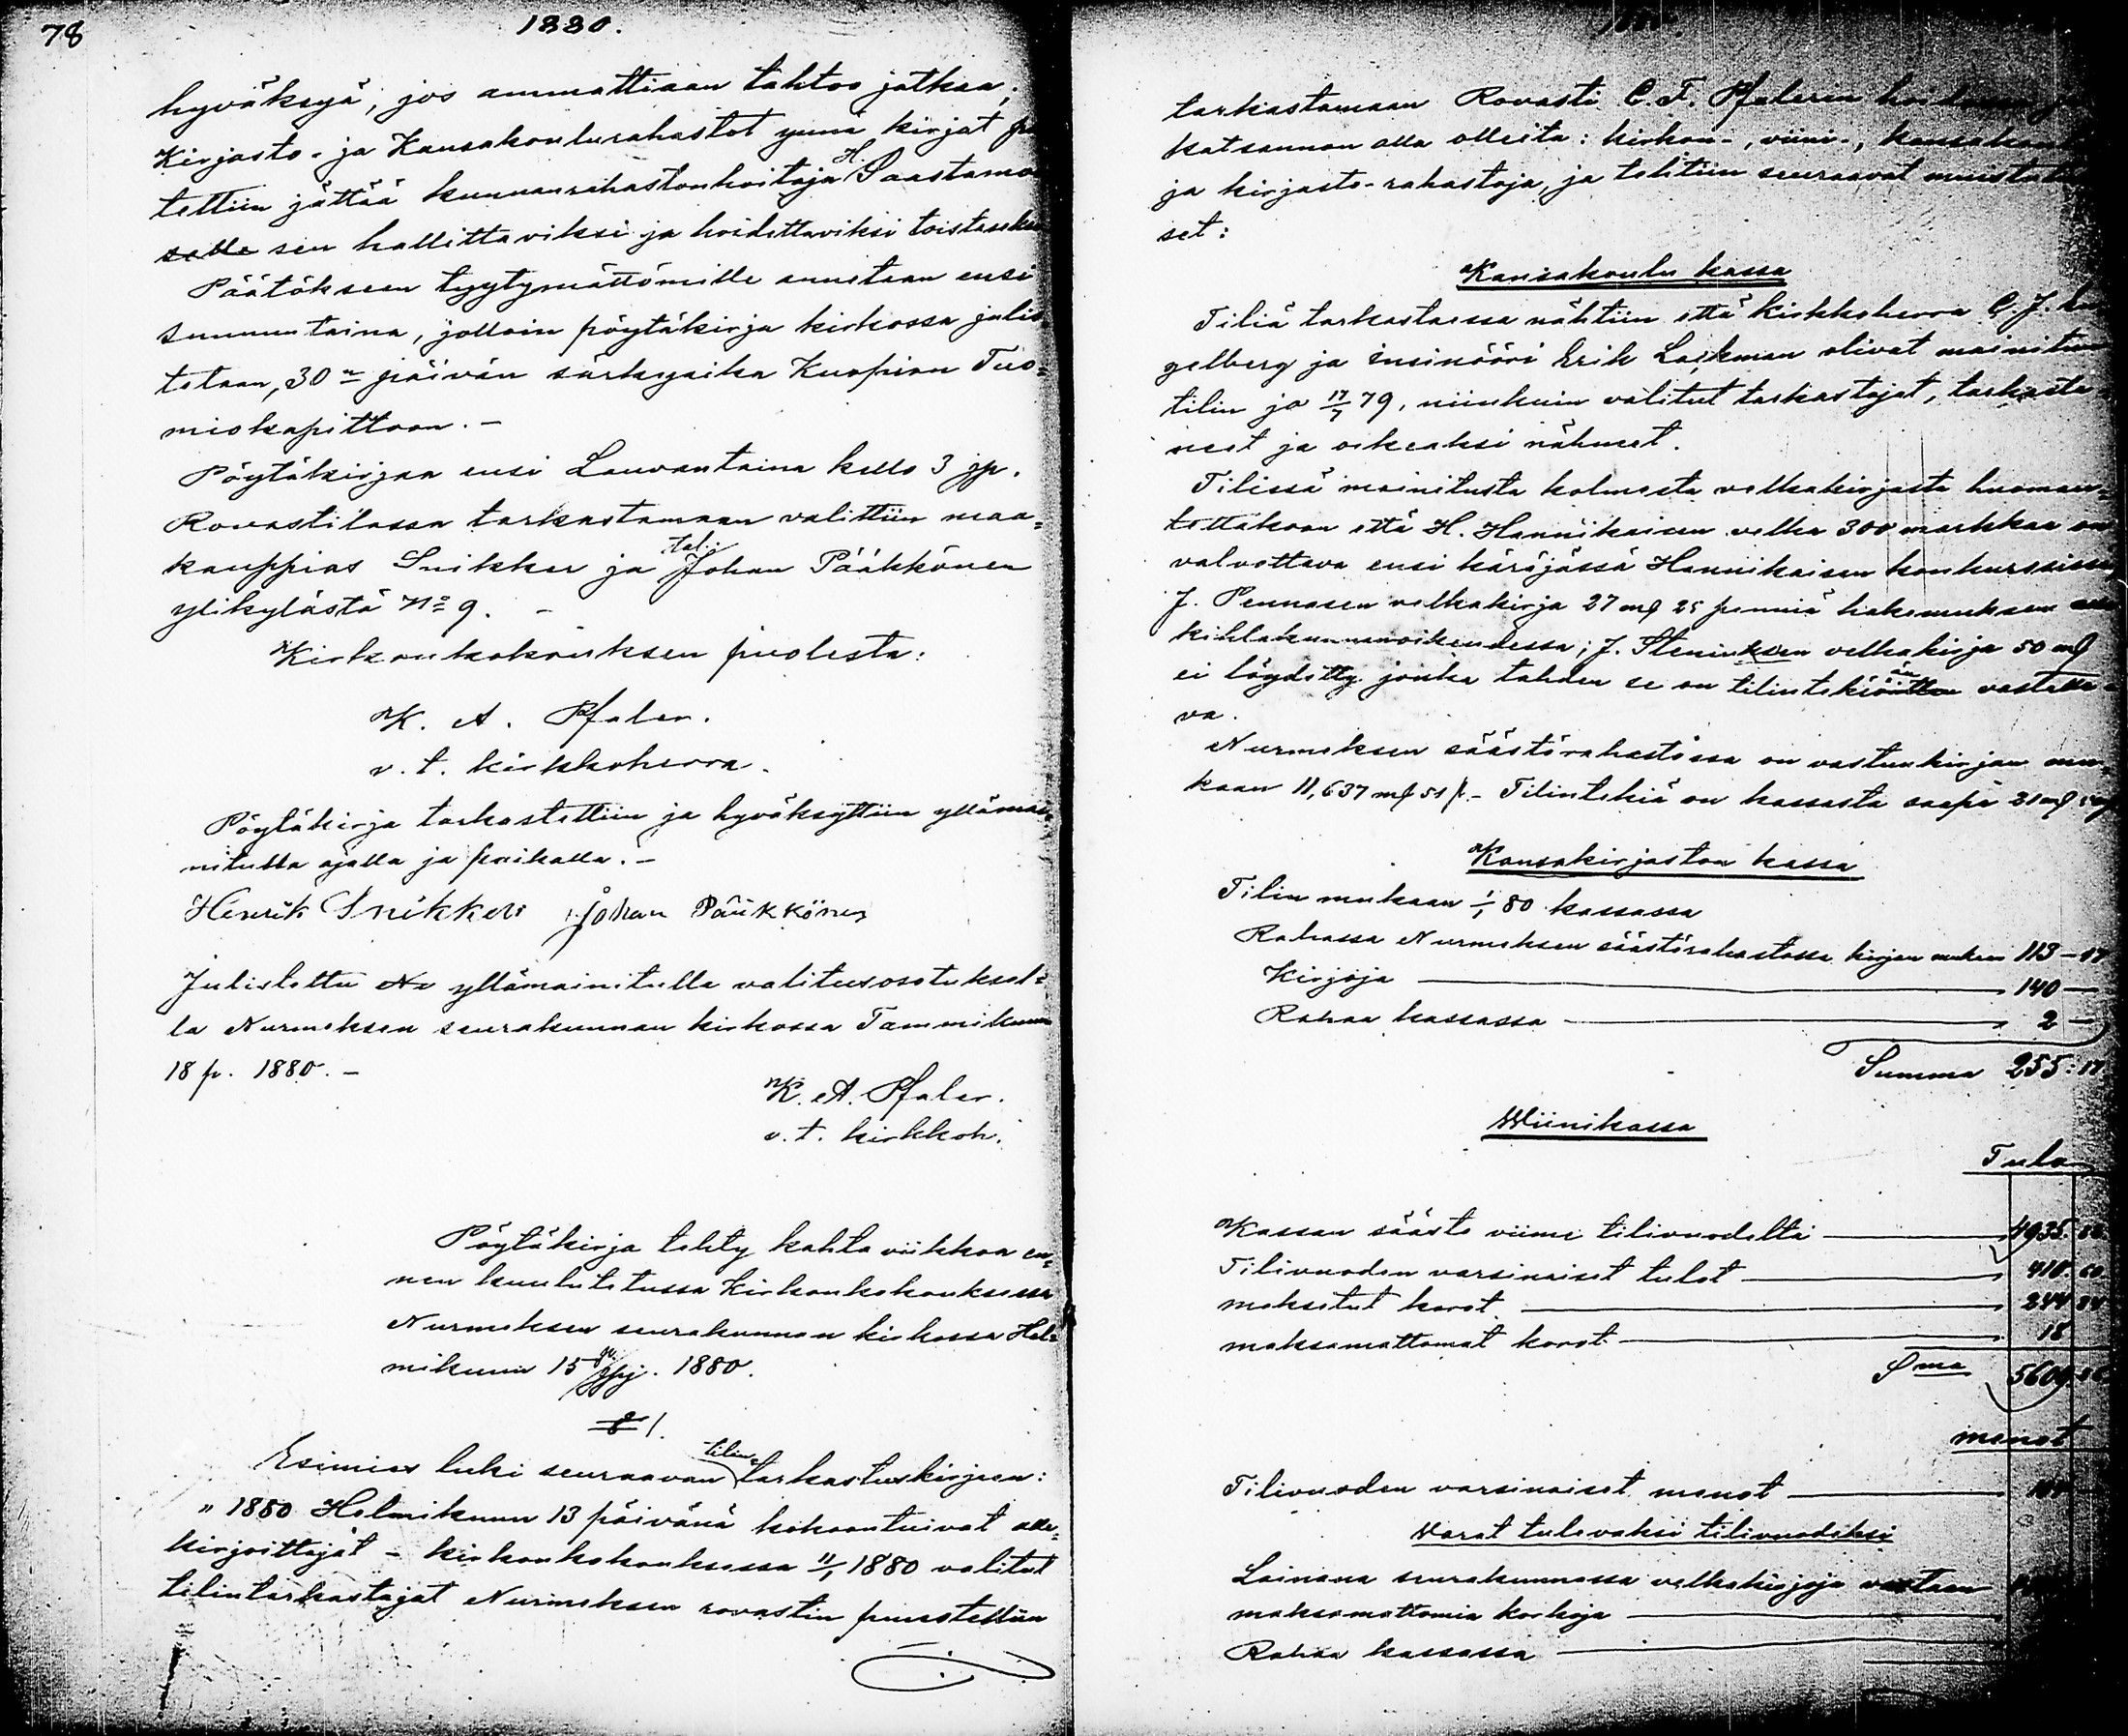 78
1880.
hyväksyä, jos ammattiaan tahtoo jatkaa;
Kirjasto- ja Kansakoulurahastot ynnä kirjat
tettiin jättää kunnanrahastonhoitaja H. Saastamoi
selle sen hallittaviksi ja hoidettaviksi toistaseksi
Päätökseen tyytymättömille annetaan ensi
sunnuntaina, jolloin pöytäkirja kirkossa julis
tetaan, 30 n päivän särkyaika Kuopion Tuo=
miokapittoon. –
Pöytäkirjaa ensi Lauvantaina kello 3 jp.
Rovastilassa tarkastamaan valittiin maa=
kauppias Snikker ja tal. Johan Pääkkönen
ylikylästä No 9. –
Kirkonkokouksen puolesta:
K. A. Pfaler.
v. t. kirkkoherra.
Pöytäkirja tarkastettiin ja hyväksyttiin yllämai
nitulla ajalla ja paikalla. –
Henrik Snikker Johan Pääkkönen
Julistettu yllämainitulla valitusosotuksel=
la Nurmeksen seurakunnan kirkossa Tammikuun
18 p. 1880. –
K. A. Pfaler.
v. t. kirkkoh.
Pöytäkirja tehty kahta viikkoa en=
nen kuulutetussa Kirkonkokouksessa
Nurmeksen seurakunnan kirkossa Hel=
mikuun 15 p. 1880.
§ 1.
Esimies luki seuraavan tilin= tarkastuskirjeen:
" 1880 Helmikuun 13 päivänä kokoontuivat alle=
kirjoittajat – kirkonkokouksessa 11/1 1880 valitut
tilintarkastajat Nurmeksen rovastin puustelliin
tarkastamaan Rovasti C. F. Pfalerin
katsannon alla olleita: kirkon-, viini-,
ja kirjasto-rahastoja, ja tehtiin seuraavat muistutuk
set:
Kansakoulu kassa
Tiliä tarkastaessa nähtiin että Kirkkoherra C. J.
gelberg ja insinööri Erik Lackman olivat mainitun
tilin jo 17/7 79, niinkuin valitut tarkastajat, tarkasta
neet ja oikeaksi nähneet.
Tilissä mainitusta kolmesta velkakirjasta huoman=
tettakoon että H. Hannikaisen velka 300 markkaa on
valvottava ensi käräjässä Hannikaisen konkurssissa
J. Pennasen velkakirja 27 mf 25 penniä hakemuksen
kihlakunnanoikeudessa; J. Steninksen velkakirja 50 mf
ei löydetty jonka tähden se on tilintekiän vastatta=
va.
Nurmeksen säästörahastossa on vastankirjan mu
kaan 11,637 mf 51 p. – Tilintekiä on kassasta saapa 21 mf
Kansakirjaston kassa
Tilin mukaan 1/1 80 kassassa
Rahassa Nurmeksen säästörahastossa kirjan mukaan 113 – 17
Kirjoja 140 –
Rahaa kassassa 2 –
Summa 255: 17
Wiinikassa
Tulo
Kassan säästö viime tilivuodelta 4935.
Tilivuoden varsinaiset tulot 410. 60
maksetut korot 244 84
maksamattomat korot 18
Sma 5609.
menot
Tilivuoden varsinaiset menot
Varat tulevaksi tilivuodeksi
Lainana seurakunnassa velkakirjoja vastaan
maksamattomia korkoja
Rahaa kassassa